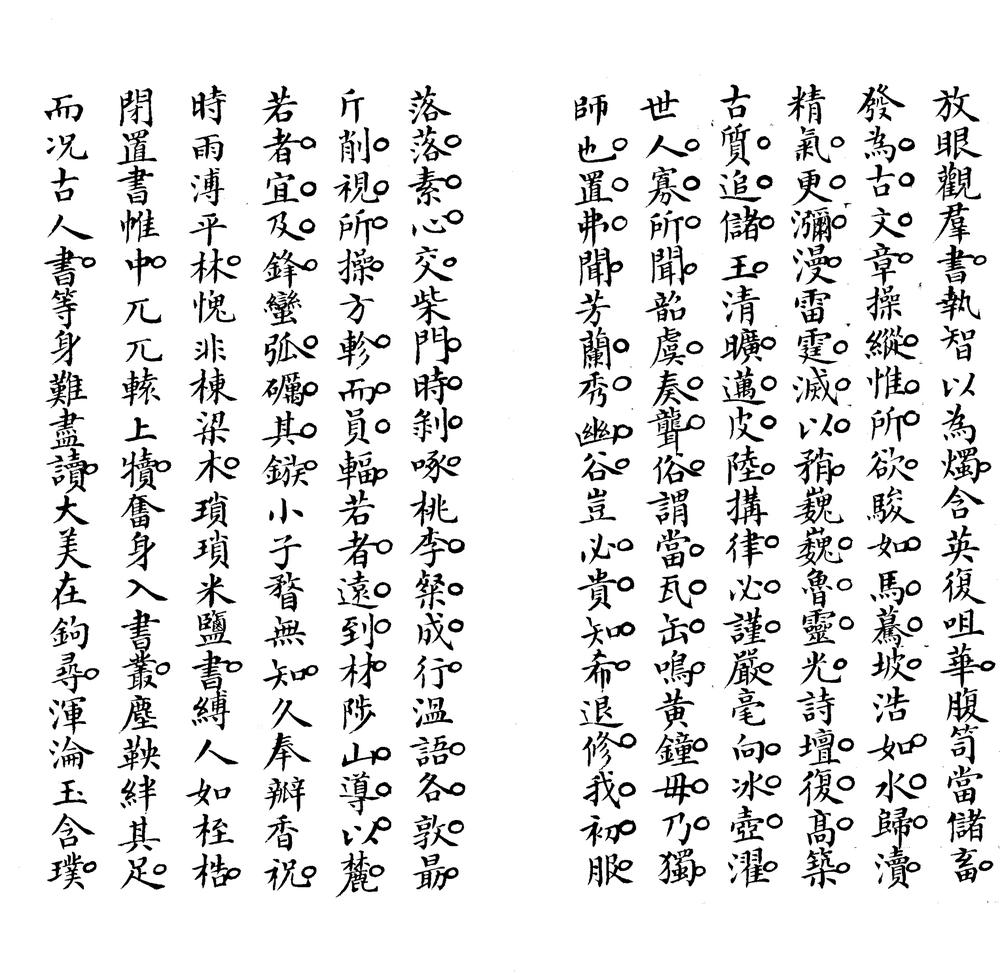 放眼觀羣書執智以為燭含英復咀華腹笥當儲畜
發為古文章操縱惟所欲駿如馬驀坡浩如水歸瀆
精氣更瀰漫雷霆滅以矟巍巍魯靈光詩壇復髙築
古質追儲王清曠邁皮陸搆律必謹嚴毫向冰壺濯
世人寡所聞韶虞奏聾俗謂當瓦缶鳴黃鐘毋乃獨
師也置弗聞芳蘭秀幽谷豈必貴知希退修我初服
落落素心交柴門時剝啄桃李粲成行溫語各敦勗
斤削視所操方軫而員輻若者遠到材陟山導以麓
若者宜及鋒蠻弧礪其鏃小子瞀無知久奉瓣香祝
時雨溥平林愧非棟梁木瑣瑣米鹽書縛人如桎梏
閉置書帷中兀兀轅上犢奮身入書叢塵鞅絆其足
而况古人書等身難盡讀大美在鉤尋渾淪玉含璞